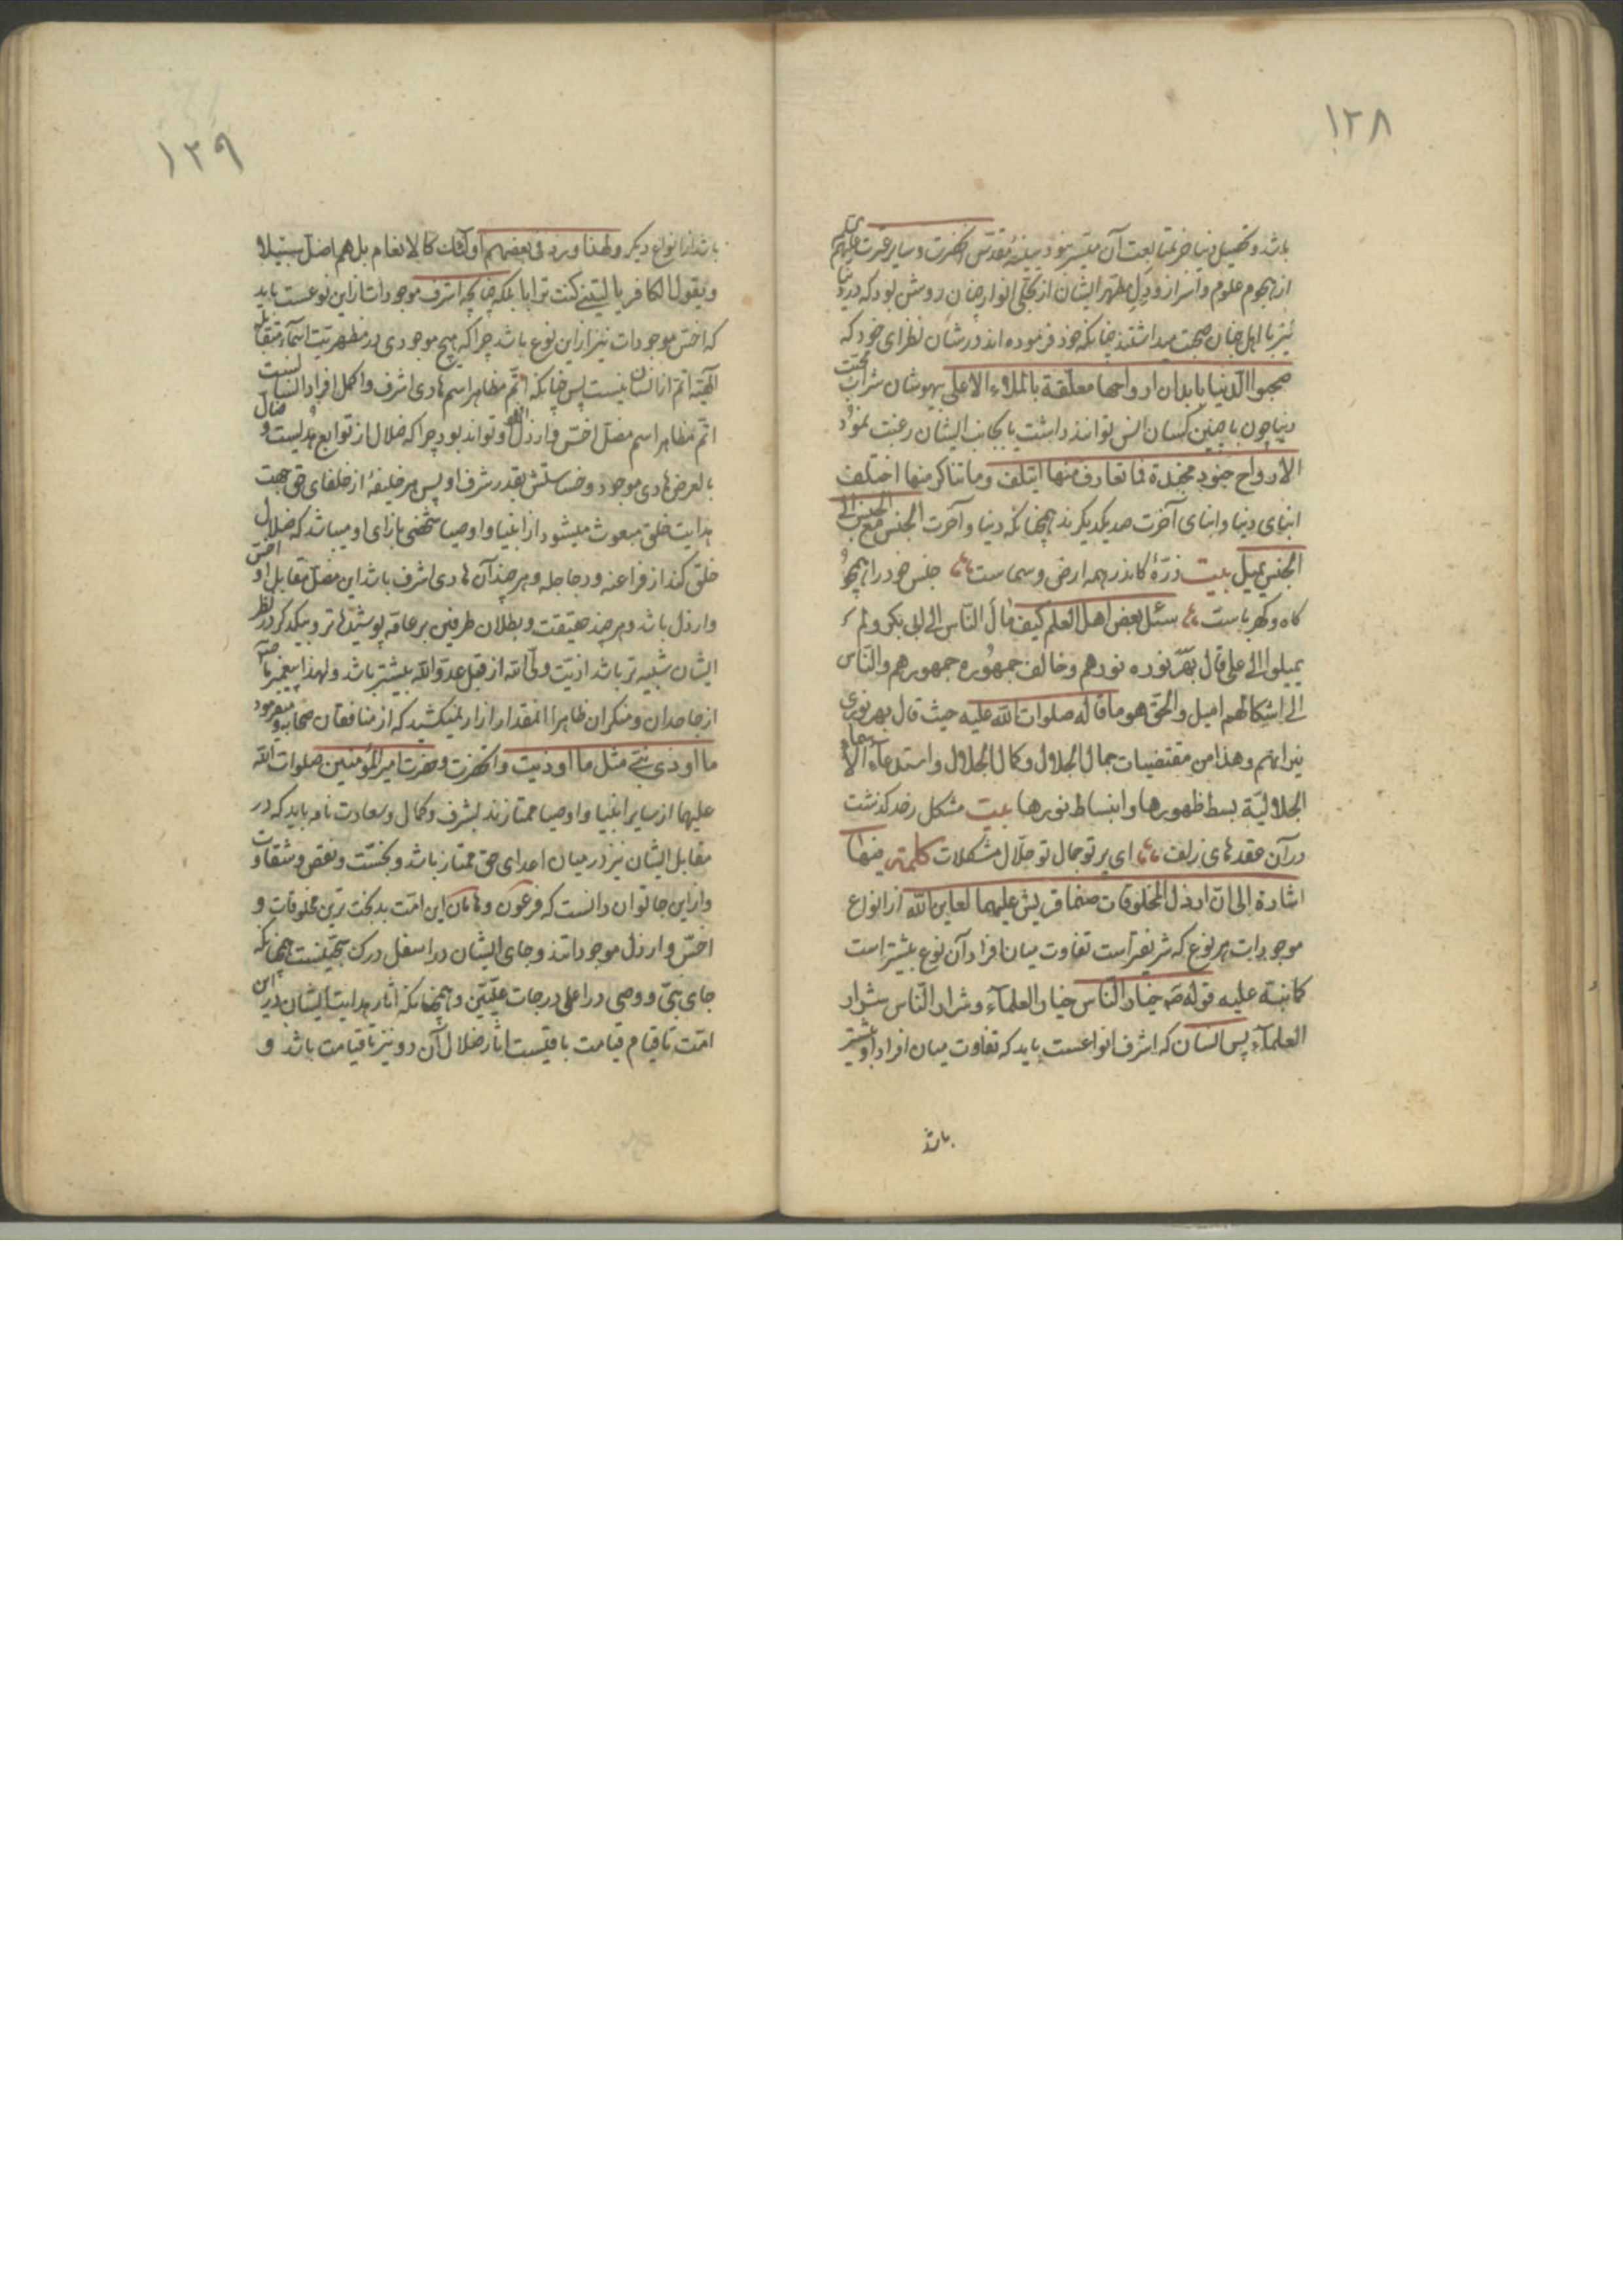 ۱۲۸
باشد و تحصیل دنیا جز بمتابعت آن میسر نبود سینهٔ مقدس آنحضرت و سایر عترت علیهم
از هجوم علوم و اسرار و دل مطهر ایشان از تجلی انوار چنان روشن بود که در دنیا
نیز با اهل جنان صحبت میداشتند چنانکه خود فرموده‌اند در شان نظرای خود که
صحبوا الدنیا بابدان ارواحها معلقة بالملاء الاعلی بیهوشان شراب محبت
دنیا چون با چنین کسان انس توانند داشت یا بجانب ایشان رغبت نمود
الارواح جنود مجندة فما تعارف منها ایتلف وما تناکر منها اختلف
ابنای دنیا و ابنای آخرت ضد یکدیکرند همچنانکه دنیا و آخرت الجنس مع الجنس الی
الجنس یمیل بیت ذرهٔ کاندر همه ارض و سماست جنس خود را همچو
کاه و کهرباست سئل بعض اهل العلم کیف مال الناس الی ابی بکر ولم
یمیلوا الی علی قال بهر نوره نورهم وخالف جمهوره جمهورهم والناس
الی اشکالهم امیل والحق هو ما قاله صلوات الله علیه حیث قال بهر نوری
نیرانهم وهذا من مقتضیات جمال الجلال وکمال الجلال واستدعاء الاسماء
الجلالیة بسط ظهورها وانبساط نورها بیت مشکل رخد کذشت
در آن عقدهای زلف ای پرتو جمال تو حلال مشکلات کلمة فیها
اشارة الی ان ارذل المخلوقات صنما قریش علیهما لعاین الله از انواع
موجودات هر نوع که شریفتر است تفاوت میان افراد آن نوع بیشتر است
کما نبه علیه قوله ص خیار الناس خیار العلماء وشرار الناس شرار
العلماء پس انسان که اشرف انواعست باید که تفاوت میان افراد او بیشتر
باشد
۱۲۹
باشد از انواع دیکر ولهذا ورد فی بعضهم اولئک کالانعام بل هم اضل سبیلا
ویقول الکافر یا لیتنی کنت ترابا بلکه چنانچه اشرف موجودات ازین نوعست باید
که اخس موجودات نیز ازین نوع باشد چرا که هیچ موجودی در مظهریت اسماء متقابلهٔ
الهیه اتم از انسان نیست پس چنانکه اتم مظاهر اسم هادی اشرف و اکمل افراد انسانست
اتم مظاهر اسم مضل اخس و ارذل افراد او تواند بود چرا که ضلال از توابع هدایست و ضال
بالعرض هادی موجود و خساستش بقدر شرف او پس هر خلیفهٔ از خلفای حق جهت
هدایت خلق مبعوث میشود از انبیا و اوصیا شخصی بازای او میباشد که ضلال
خلق کند از فراعنه و دجاجله و هر چند آن هادی اشرف باشد این مضل مقابل او اخس
و ارذل باشد و هر چند حقیقت و بطلان طرفین بر عامه پوشیده‌تر و بیکدیکر در نظر
ایشان شبیه‌تر باشد اذیت ولی الله از قبل عدو الله بیشتر باشد ولهذا پیغمبر ما ص
از جاحدان و منکران ظاهرا آنمقدار آزار نمیکشید که از منافقان صحابه و میفرمود
ما اوذی نبی مثل ما اوذیت و آنحضرت و حضرت امیر المؤمنین صلوات الله
علیهما از سایر انبیا و اوصیا ممتازند بشرف و کمال و سعادت تامه باید که در
مقابل ایشان نیز در میان اعدای حق ممتاز باشد و بخست و نقص و شقاوت
و ازین جا توان دانست که فرعون و هامان این امت بدبخت‌ترین مخلوقات و
اخس و ارذل موجوداتند و جای ایشان در اسفل درک سجینست همچنانکه
جای نبی و وصی در اعلی درجات علیین و همچنانکه آثار هدایت ایشان درین
امت تا قیام قیامت باقیست آثار ضلال آن دو نیز تا قیامت باشد و